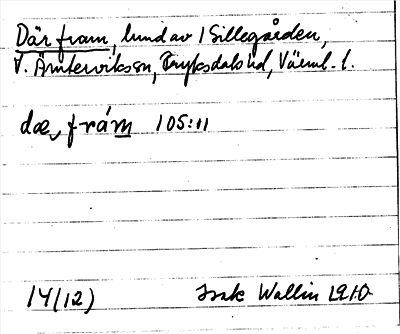 Där fram, lund av 1 Sillegården,
V. Ämterviks sn, Fryksdals hd, Värml. l.
dæ, frám 105:11
14(12)
Isak Wallin 1910